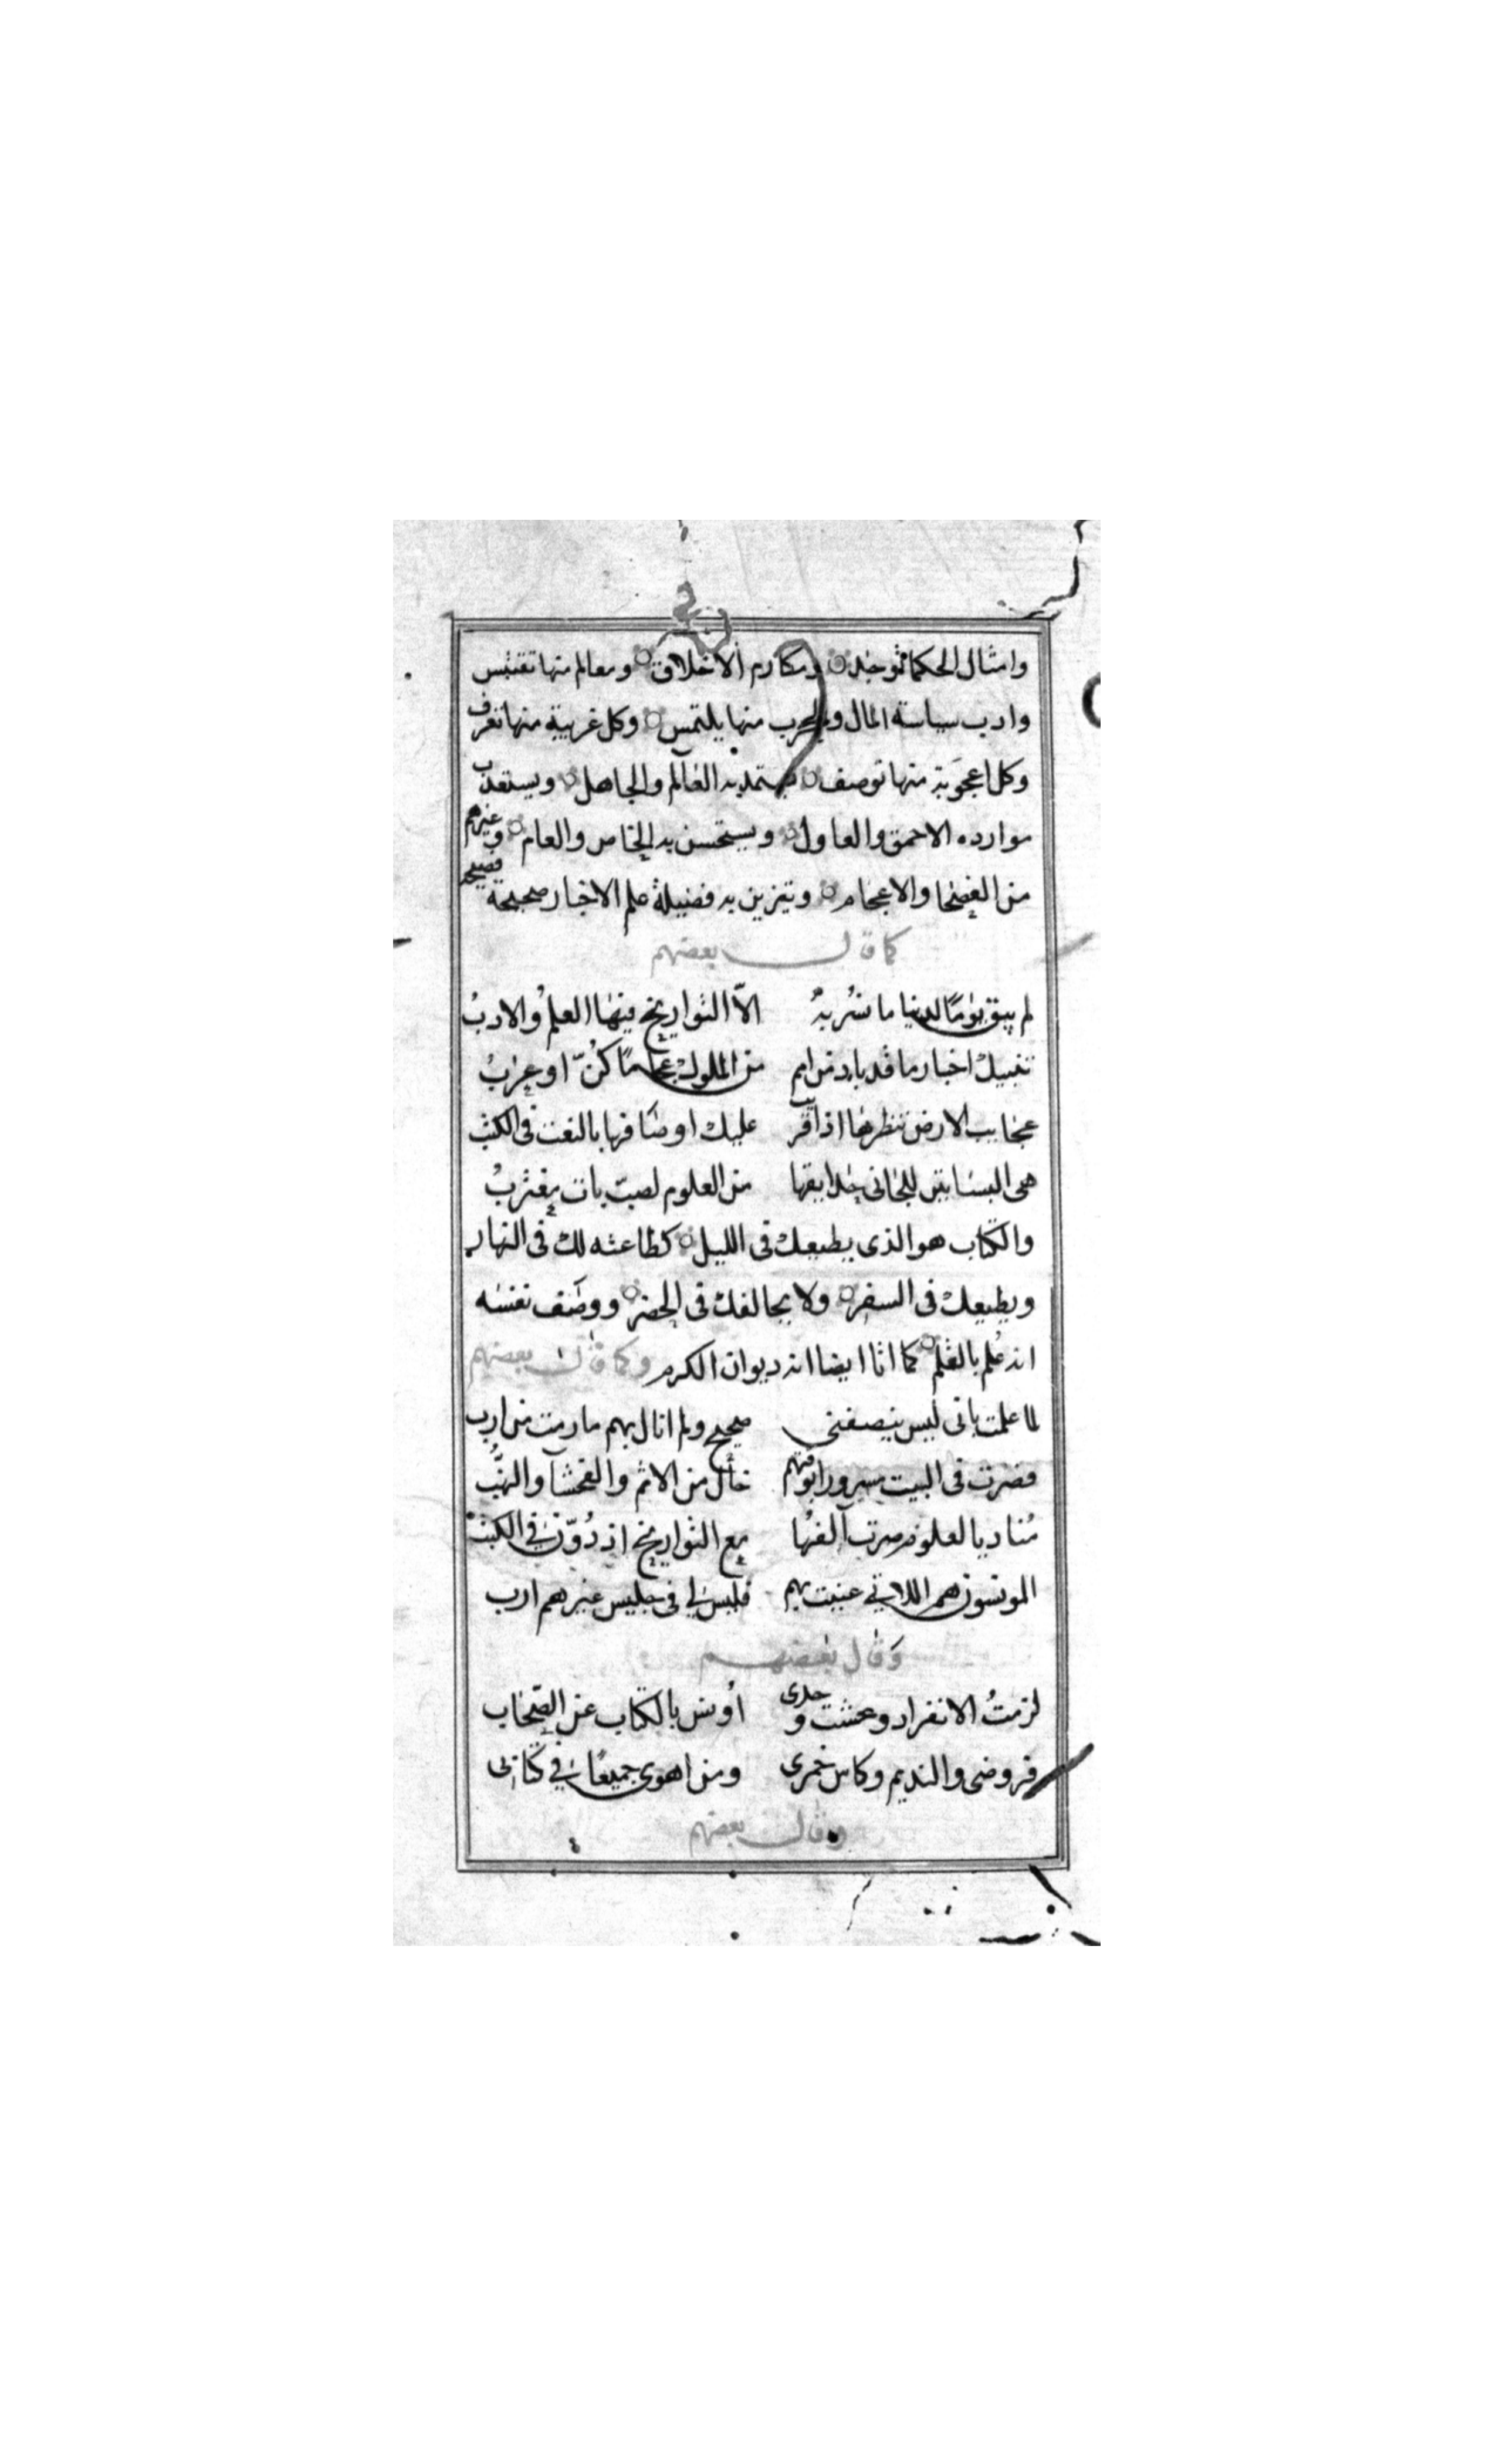 وامثال الحكما توجد ومكارم الاخلاق ومعالم منها تقتبس
وادب سياسة المال والحرب منها يلتمس وكل غريبة منها تعرف
وكل اعجوبة منها توصف يستمد به العالم والجاهل ويستعذب
موارده الاحمق والعاول ويستحسن به الخاص والعام وغيرهم
من الفصحا والاعجام وتتزين به فضيلة علم الاخبار صحيحة فصيحة
كما قال بعضهم
لم يبق يوما لدنيا ما نسر به الا التواريخ فيها العلم والادب
تنبيك اخبار ما قد باد من امم من الملوك عجاما كن او عرب
عجايب الارض تنظرها اذا قريت عليك اوصافها بالنعت فى الكتب
هى البساتين للجانى حدايقها من العلوم لصب بات مغترب
والكتاب هو الذى يطيعك فى الليل كطاعته لك فى النهار
ويطيعك فى السفر ولا يخالفك فى الحضر ووصف نفسه
انه علم بالقلم كما اتا ايضا انه ديوان الكرم وكما قال بعضهم
لما علمت بانى ليس ينصفنى صحيح ولم انال بهم ما رمت من ارب
فصرت فى البيت مسرورا بوقتهم خال من الاثم والفحشآ والنهب
مناديا لعلوم صرت آلفها مع التواريخ اذ دون فى الكتب
المونسون هم اللاتي عنيت بهم فليس لي فى جليس غيرهم ارب
وقال بعضهم
لزمت الانفراد وعشت وحدى اونس بالكتاب عن الصحاب
فروضى والنديم وكاس خمرى ومن اهوى جميعا في كتابى
وقال بعضهم